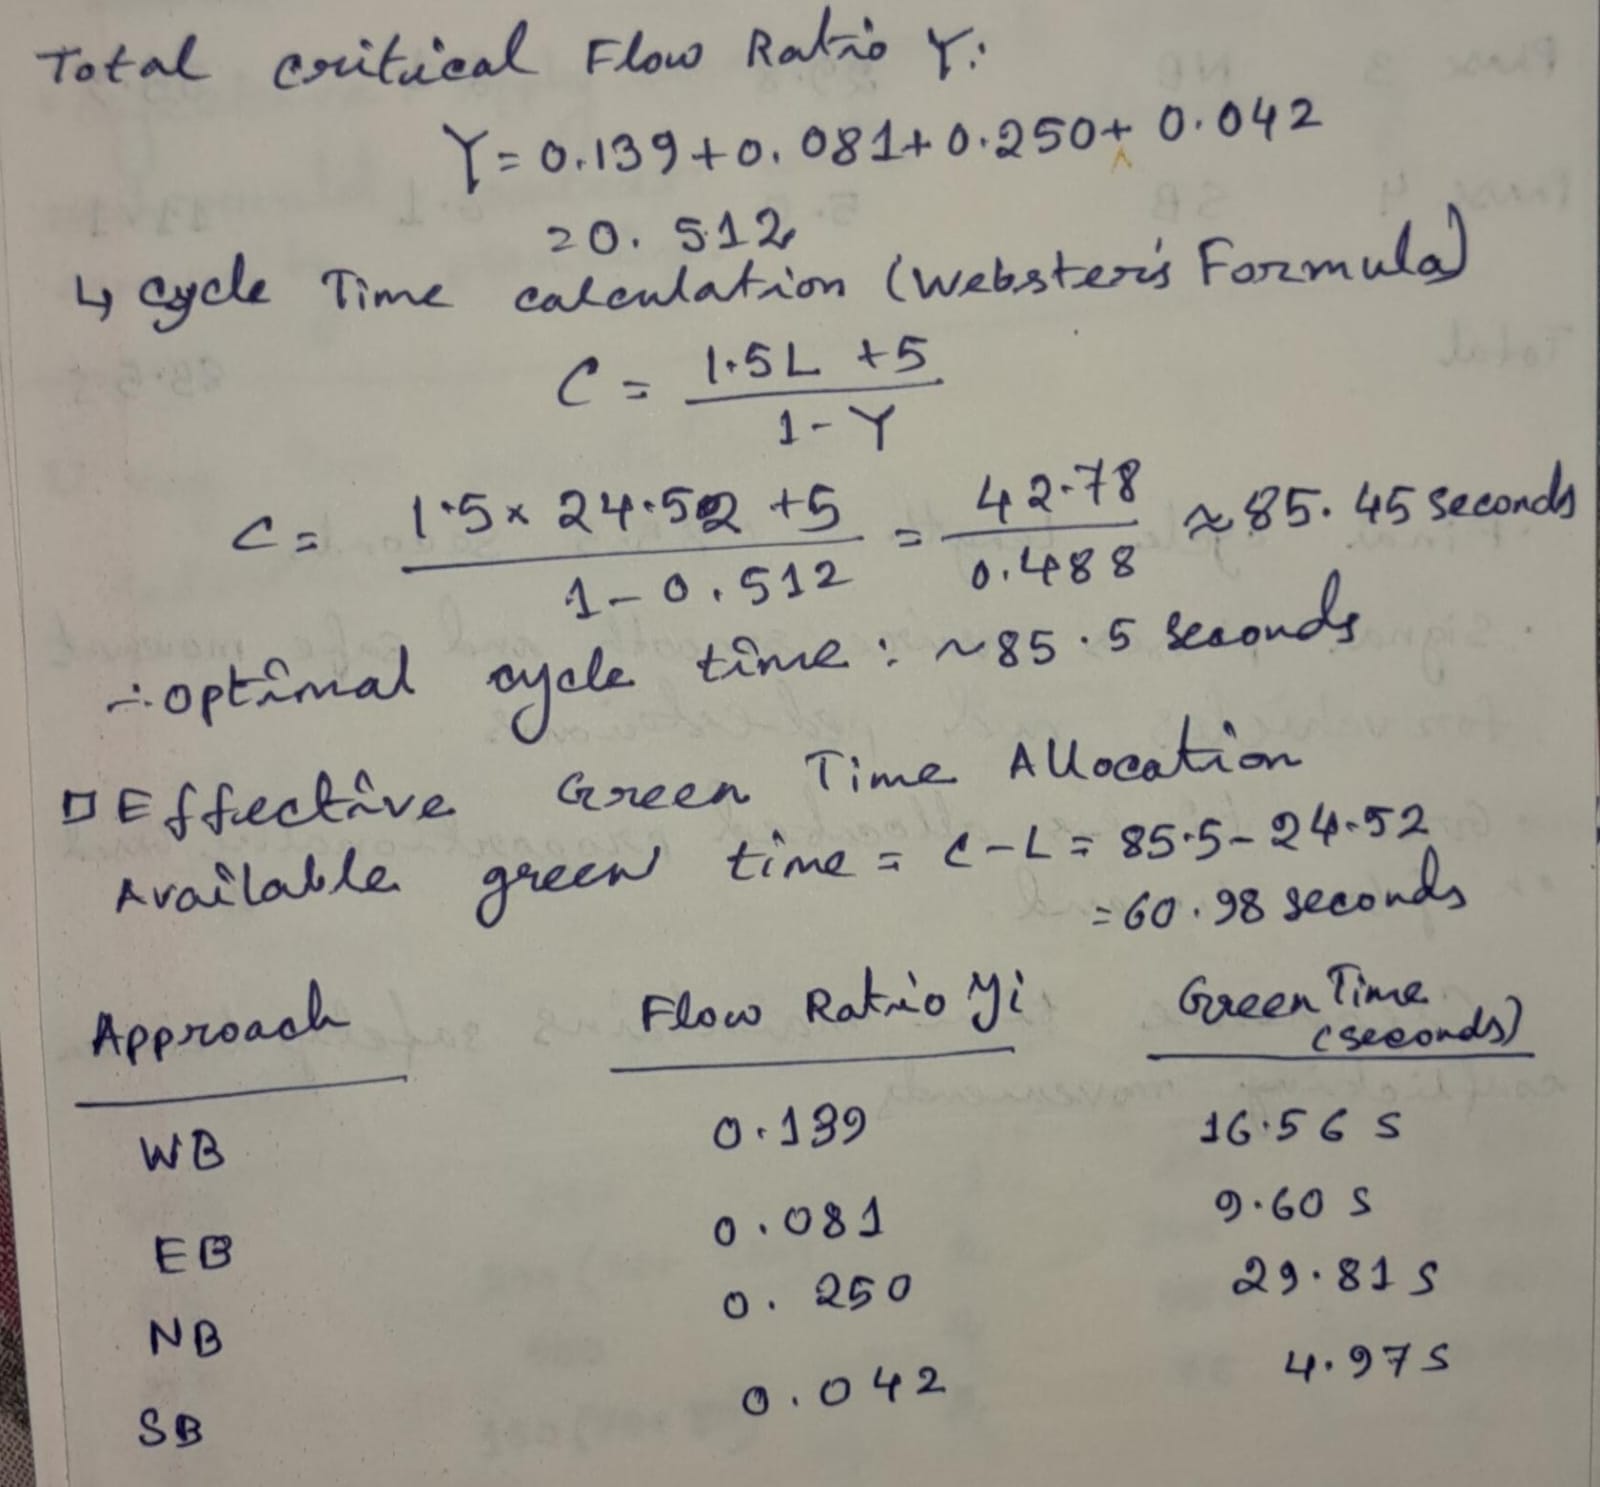 Total critical Flow Ratio Y:
Y = 0.139 + 0.081 + 0.250 + 0.042
= 0.512
↳ Cycle Time calculation (Webster's Formula)
C = 1.5L + 5 / 1 - Y
C = 1.5 x 24.52 + 5 / 1 - 0.512 = 42.78 / 0.488 ≈ 85.45 seconds
∴ optimal cycle time : ~85.5 seconds
□ Effective Green Time Allocation
Available green time = C - L = 85.5 - 24.52
= 60.98 seconds
Approach Flow Ratio yi Green Time (seconds)
WB 0.139 16.56 s
EB 0.081 9.60 s
NB 0.250 29.81 s
SB 0.042 4.97 s